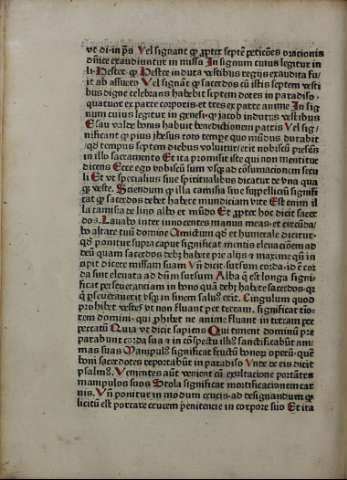 vt di in p̄s Vel signant ꝙ ꝓpter septē peticões orationis
dn̄ice exaudiuntur in missa In signum cuius legitur in
li· Hester ꝙ Hester induta vestibus regijs exaudita fu/
it ab assuero Vel signāt ꝙ sacerdos cū istis septem vesti
bus digne celebrans habebit septem dotes in paradiso
quatuor ex parte corporis·et tres ex parte anime In sig
num cuius legitur in genesi·ꝙ iacob indutus vestibus
Esau valde bonis habuit benedictionem patris Vel sig/
nificant ꝙ pius ihesus toto tempe quo mūdus durabit
qd̄ tempus septem diebus voluitur/erit nobiscū presēs
in illo sacramento Et ita promisit iste qui non mentitur
dicens Ecce ego vobiscū sum vsqꝫ ad cōsumacionem secu
li Et vt specialius siue spiritualius dicatur de vna qua
qꝫ veste· Sciendum ꝙ illa camisia siue suppelliciū signifi
cat ꝙ sacerdos debet habere mundiciam vite Est enim il
la camisia de lino albo et mūdo Et ꝓpter hoc dicit sacer
dos· Lauabo inter innocentes manus meas·et circūda/
bo altare tuū domine Amictus qd̄ et humerale dicitur·
qd̄ ponitur supra caput significat mentis eleuacionē ad
deū quam sacerdos debꝫ habere pre alijs·⁊ maxime qn̄ in
cipit dicere missam suam Vn̄ dicit sursum corda·id ē cor
da sint eleuata ad dūm sursum Alba q̄ est longa signi/
ficat perseuerantiam in bono quā debꝫ habere sacerdos·ꝙ
q̄ pseuerauerit vsqꝫ in finem saluꝰ erit· Cingulum quod
prohibet vestes vt non fluant per terram· significat tio
rem domini· qui phibet ne anime fluant in terram per
peccatū Quia vt dicit sapiens Qui timent dominū pre
parabunt corda sua ⁊ in cōspectu illiꝰ sanctificabūt ani/
mas suas Manipulꝰ significat fructū bonoꝝ operū·quē
boni sacerdotes reportabūt in paradiso Vnde de eis dicit
psalmꝰ· Venientes aūt venient cū exultacione portātes
manipulos suos Stola significat mortificacionem car
nis· Vn̄ ponitur in modum crucis·ad designandum ꝙ
licitū est portare crucem pēnitencie in corpore suo Et ita